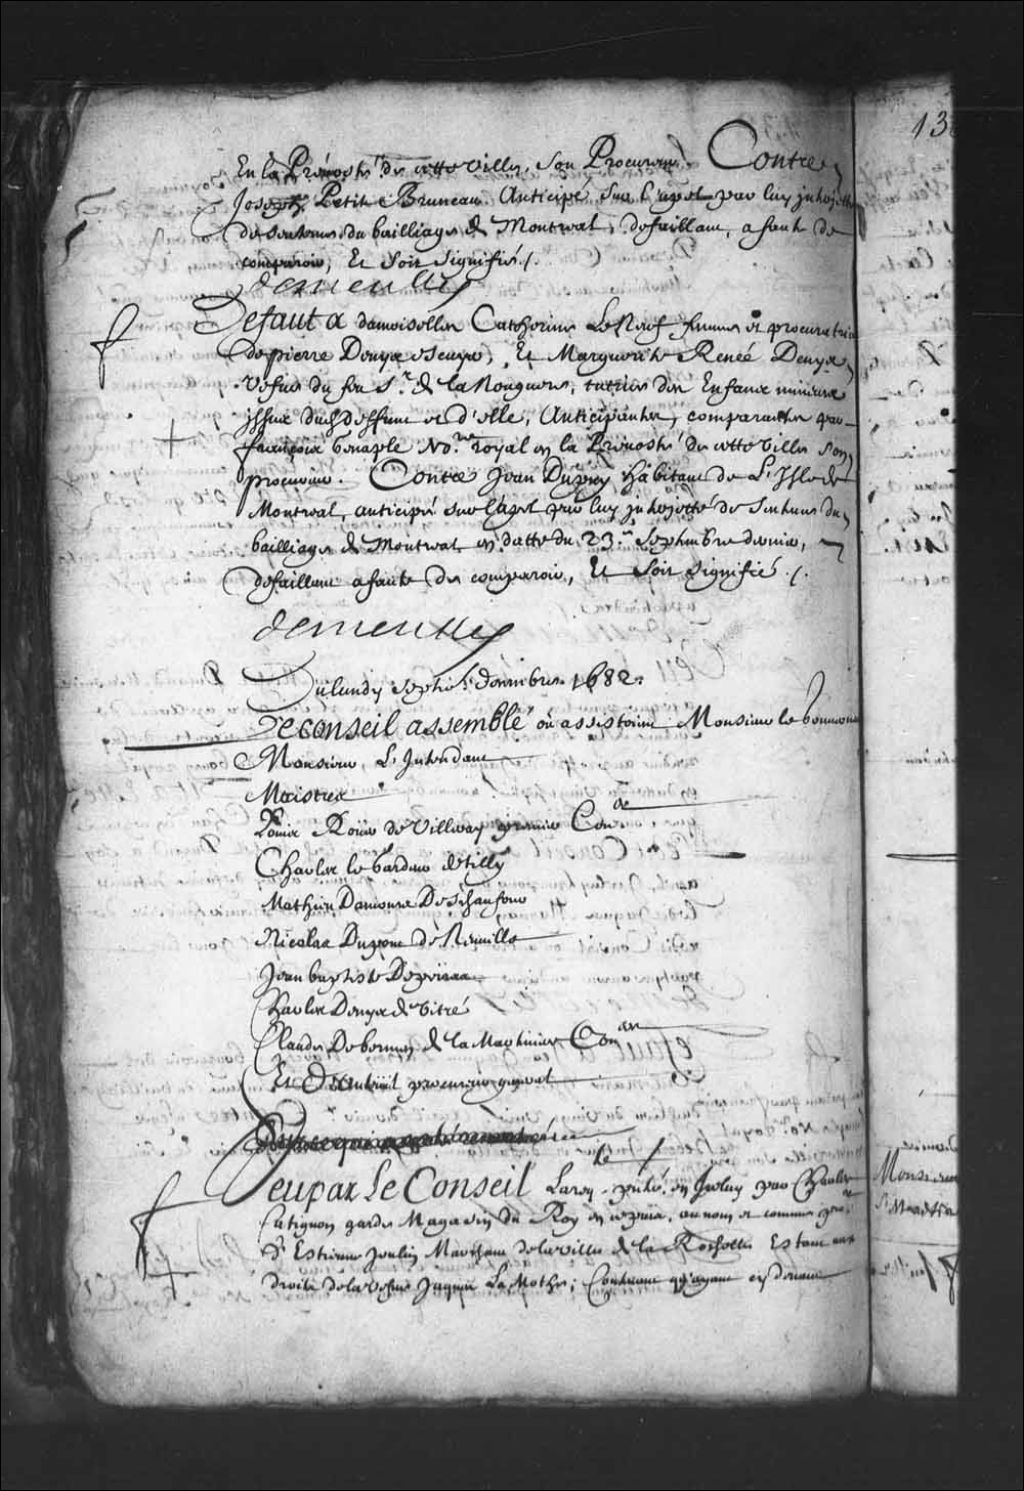 En la Prévosté de cette ville, son Procureur. Contre
Joseph Petit Bruneau Anticipé sur l'apel par luy interjetté
de sentence du bailliage de Montreal, defaillant, a faute de
comparoir, Et soit signifié /.
demeulle
Defaut a damoiselle Catherine LeNeuf femme et procuratrice
de pierre Denys Escuyer, Et Marguerite Renée Denys
vefve du feu Sr. de la Nouguere, tutrice des Enfans mineurs
issus dud. deffunt et d'elle, Anticipantes, comparantes par
françois Genaple No.re royal en la Prevosté de cette ville son
procureur. Contre Jean Dupuy habitant de L'Isle de
Montreal, anticipé sur l'apel par luy interjetté de sentence du
bailliage de Montreal en datte du 23.e Septembre dernier,
defaillant a faute de comparoir, Et soit signifié /.
demeulle
Du lundy septie. decembre 1682.
Le conseil assemblé ou assistoient Monsieur le gouverneur
Monsieur L'Intendant
Maistres
Louis Roüer de Villeray premier Con.er
Charles le Gardeur de Tilly
Mathieu Damours Deschaufour
Nicolas Dupont de Neuville
Jean baptiste Depeiras
Charles Denys de Vitré
Claude Debermen de la Martiniere Con.ers
Et D'auteuil procureur general
Veu par le Conseil La req.te pntée en Iceluy par Charles
Catignon garde Magasin du Roy en ce païs, au nom et comme pro.r
d' Estienne Joulin Marchant de la ville de la Rochelle Estant aux
droits de la vefve Jacques La Mothe; Contenant qu'ayant cy devant
13
Monsieur